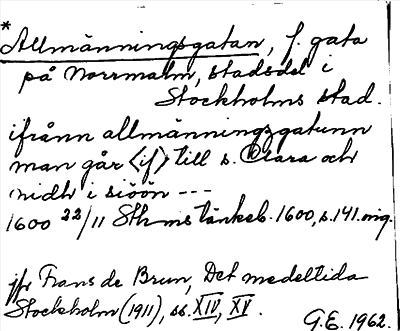 *Allmänningsgatan, f. gata
på Norrmalm, stadsdel i
Stockholms stad.
ifrånn allmänningzgatunn
man går <if> till s. Clara och
nidh i siöön ---
1600 22/11 Sthms tänkeb. 1600, s. 141. mg.
jfr Frans de Brun, Det medeltida
Stockholm (1911), ss. XIV, XV.
G.E. 1962.